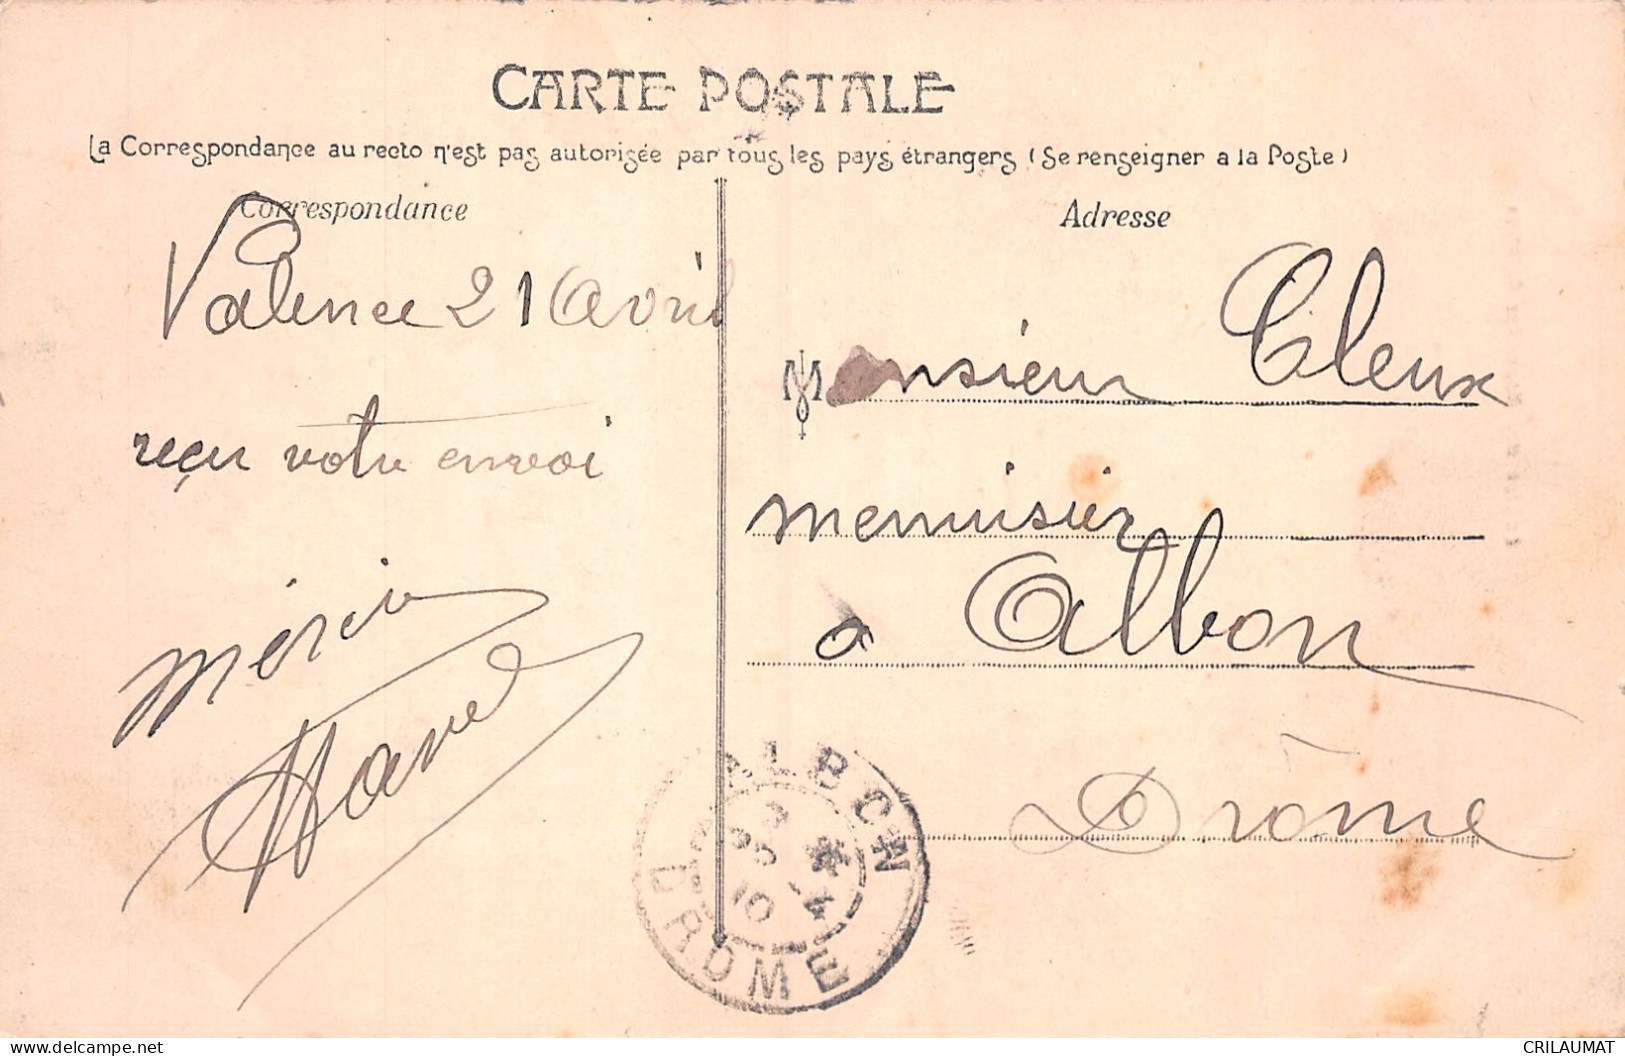 CARTE POSTALE
La Correspondance au recto n'est pas autorisée par tous les pays étrangers (Se renseigner a la Poste)
Correspondance
Valence 21 Avril
reçu votre envoi
Adresse
Monsieur Cleux
menuisier
à Albon
Drôme
ALBON
DROME
10
www.delcampe.net
CRILAUMAT